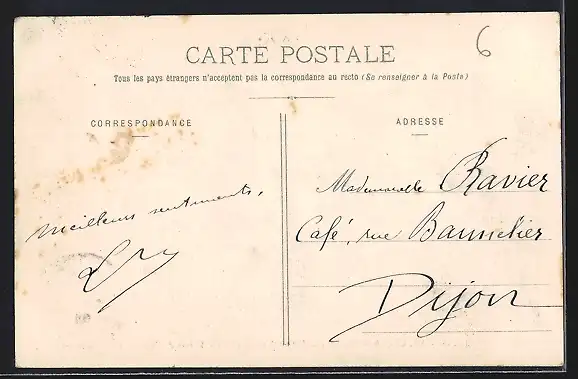 6
CARTE POSTALE
Tous les pays étrangers n'acceptent pas la correspondance au recto (Se renseigner à la Poste)
CORRESPONDANCE
ADRESSE
Mademoiselle Ravier
Café, rue Bannelier
Dijon
Meilleurs sentiments,